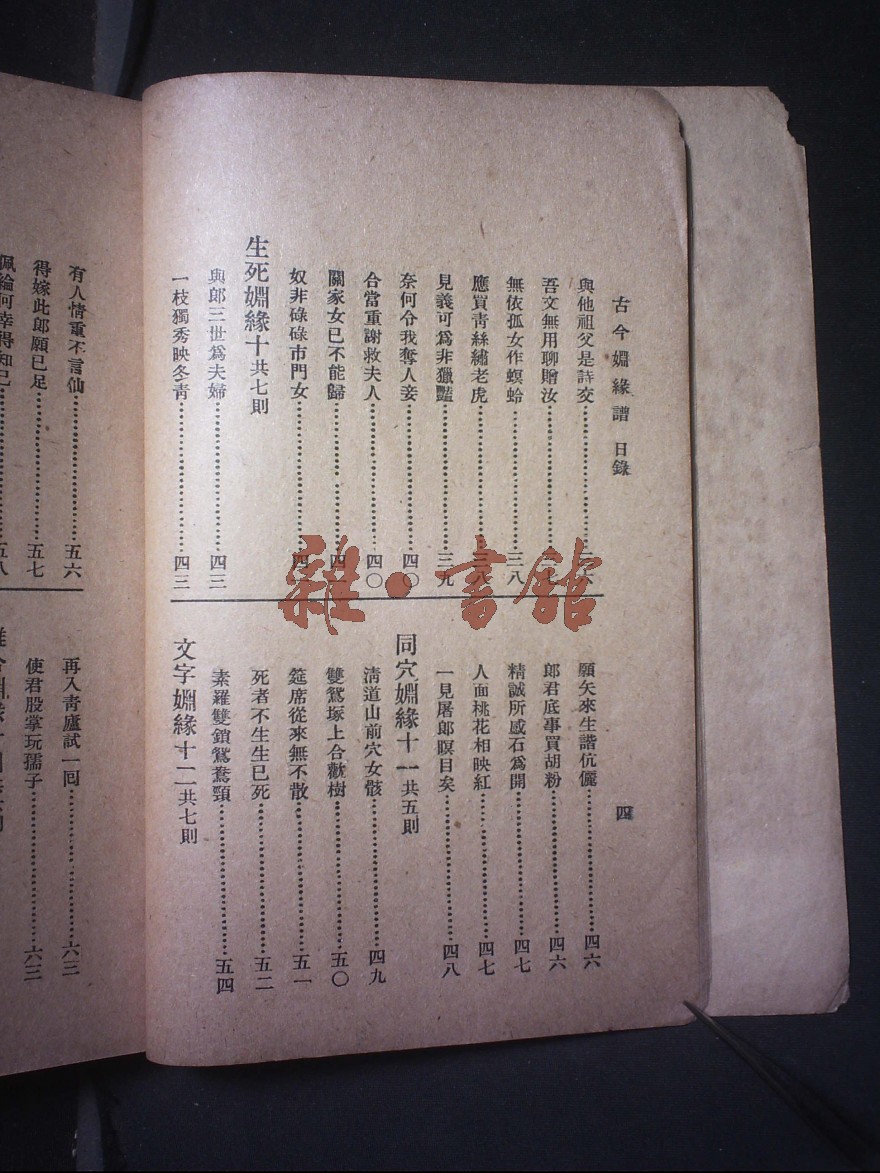 古今婣緣譜 日錄 四
與他祖父是詩交……三六
吾文無用聊贈汝
無依孤女作螟蛉……三八
應買靑絲繡老虎……三八
見義可爲非獵豔……三九
奈何令我奪人妾……四〇
合當重謝救夫人……四〇
關家女已不能歸
奴非碌碌市門女
生死婣緣十共七則
與郎三世爲夫婦……四三
一枝獨秀映冬靑……四三
願矢來生諧伉儷……四六
郎君底事買胡粉……四六
精誠所感石爲開……四七
人面桃花相映紅……四七
一見屠郎瞑目矣……四八
同穴婣緣十一共五則
淸道山前穴女骸……四九
雙鴛塚上合歡樹……五〇
筵席從來無不散……五一
死者不生生已死……五二
素羅雙鎖鴛鴦頸……五四
文字婣緣十二共七則
有人情重不言仙……五六
得嫁此郎願已足……五七
佩綸何幸得知己……五八
再入靑廬試一回……六三
使君股掌玩孺子……六三
雜·書館